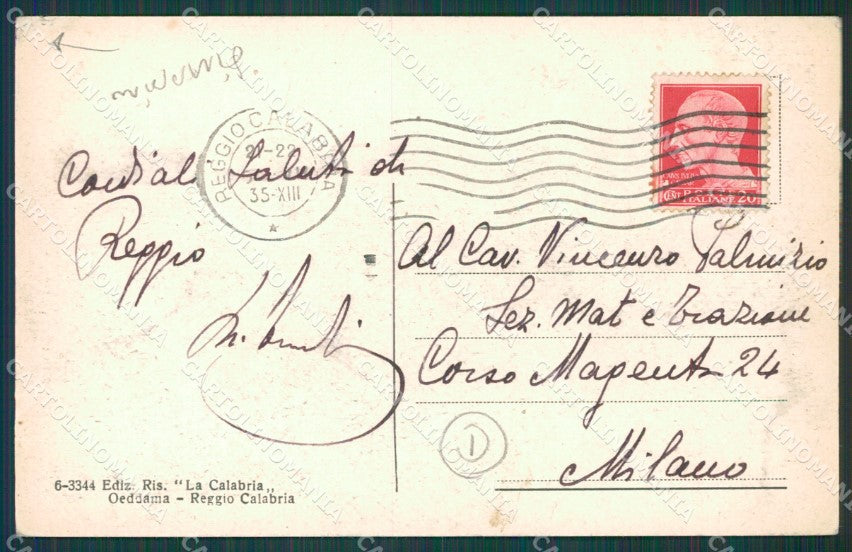 REGGIO CALABRIA
35-XIII
Cordiali saluti da
Reggio
POSTE ITALIANE
CENT. 20
Al Cav. Vincenzo Palmizio
Sez. Mat e Trazione
Corso Magenta 24
Milano
D
6-3344 Ediz. Ris. "La Calabria„
Oeddama - Reggio Calabria
CARTOLINOMANIA